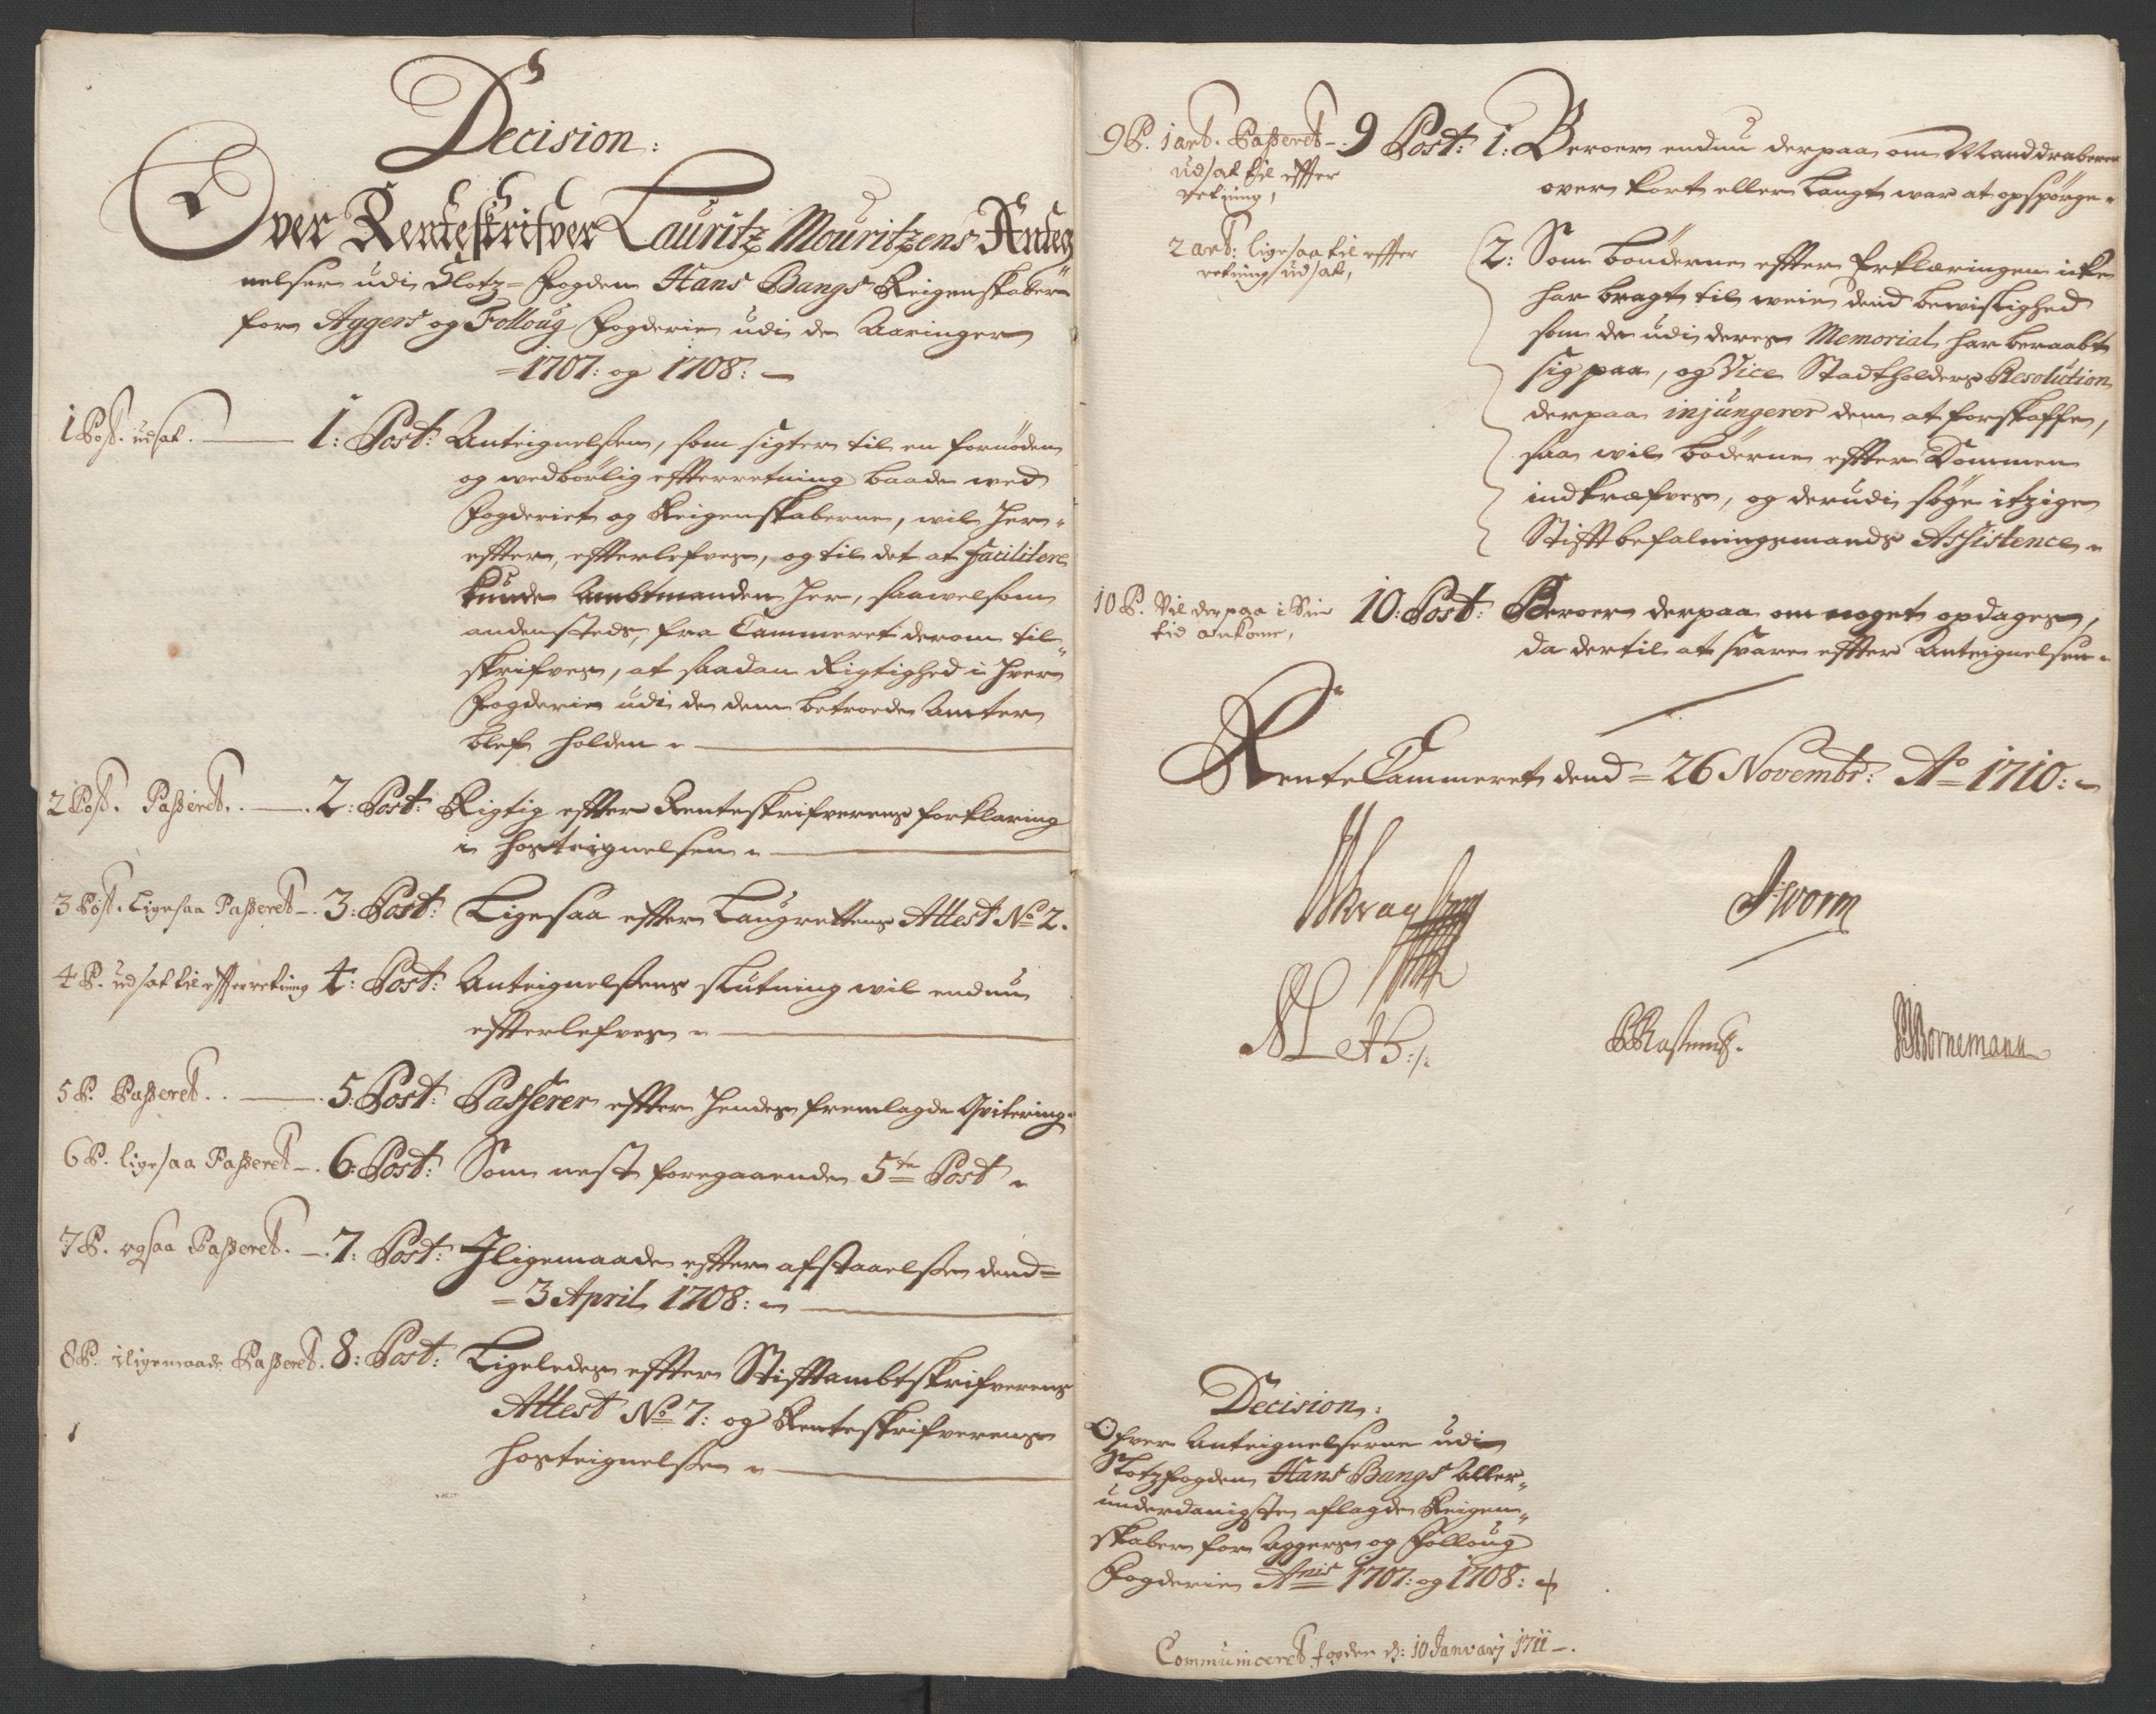 Decision:
Over Renteskrifver Lauritz Mouritzens Anteg
nelser udi Slotz-Fogden Hans Bangs Reigenskaber
for Aggers og Folloug Fogderie udi de Aaringer
1707: og 1708:
1 Post. udsat. 1: Post: Anteignelsen, som sigter til en fornøden
og wedbørlig effterretning baade wed
Fogderiet og Reigenskaberne, wil her-
effter, effterlefves, og til det at facilitere
kunde Ambtmanden her, saawelsom
andensteds, fra Cammeret derom til-
skrifves, at saadan Rigtighed i hver
Fogderie udi de dem betroede Amter
blef holden
2 Post. Passeret. 2: Post: Rigtig effter Renteskrifverens forklaring
i Hosteignelsen
3 Post. Ligesaa Passeret 3: Post: Ligesaa effter Laugrettens Attest No 2.
4 P. udsat til effterretning 4: Post: Anteignelsens slutning wil endnu
effterlefves
5 P. Passeret. 5: Post: Passerer effter hendes fremlagde Qvitering
6 P. ligesaa Passeret 6: Post: Som nest foregaaende 5te Post
7 P. ogsaa Passeret. 7: Post: Iligemaade effter afstaaelsen dend
3 April 1708:
8 P. iligemaade Passeret. 8: Post: Ligeledes effter Stifftambtskrifverens
Attest No 7: og Renteskrifverens
Hosteignelse
9 P. 1 art. Passeret 9 Post: 1: Beroer endnu derpaa om Manddraberen
udsat til effter
retning, over kort eller langt war at opspørge
2 art: ligesaa til effter 2: Som bønderne effter Erklæringen icke
retning udsat, har bragt til weie dend bewislighed
som de udi deres Memorial har beraabt
sig paa, og Vice Stadtholders Resolution
derpaa injungerer dem at forskaffe,
saa wil bøderne effter Dommen
indkræfves, og derudi søge itzige
Stifftbefalningsmands Assistence
10 P. Vil derpaa i Sin 10: Post: Beroer derpaa om noget opdages,
tid ankome, da dertil at svare effter Anteignelsen
RenteCammeret dend 26 Novembr: Ao 1710:
J Worm
Bornemann
Decision:
Ofver Anteignelserne udi
Slotzfogden Hans Bangs Aller-
underdanigste aflagde Reigen-
skaber for Aggers og Folloug
Fogderie Anis 1707: og 1708:
Communiceret fogden d: 10 Januarj 1711